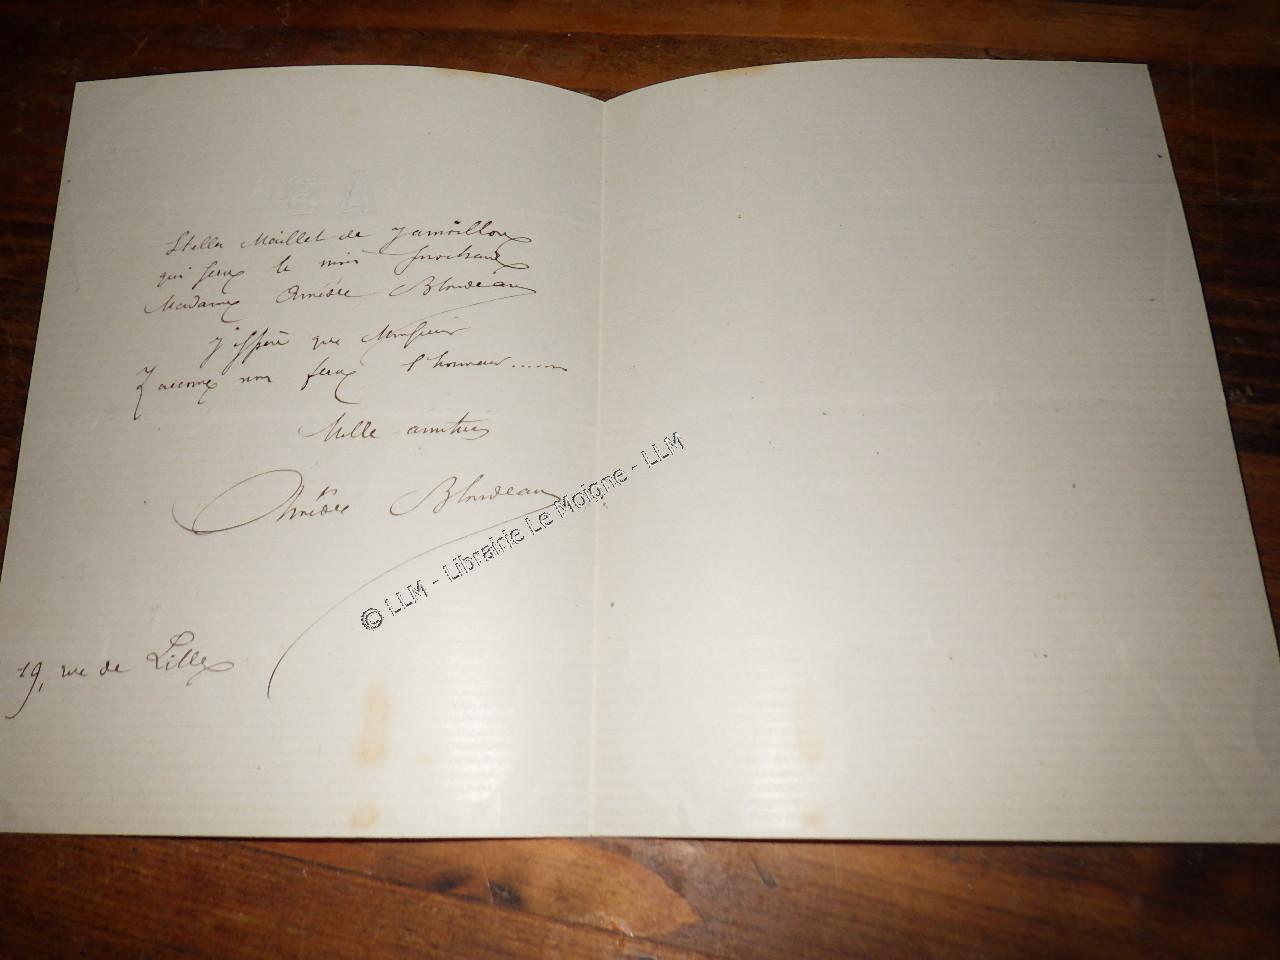 Stella Maillet de
qui sera le mois prochain
Madame Amédée Blondeau
J'espère que Monsieur
nous fera l'honneur......
Mille amitiés
Amédée Blondeau
© LLM - Librairie Le Moigne - LLM
19, rue de Lille